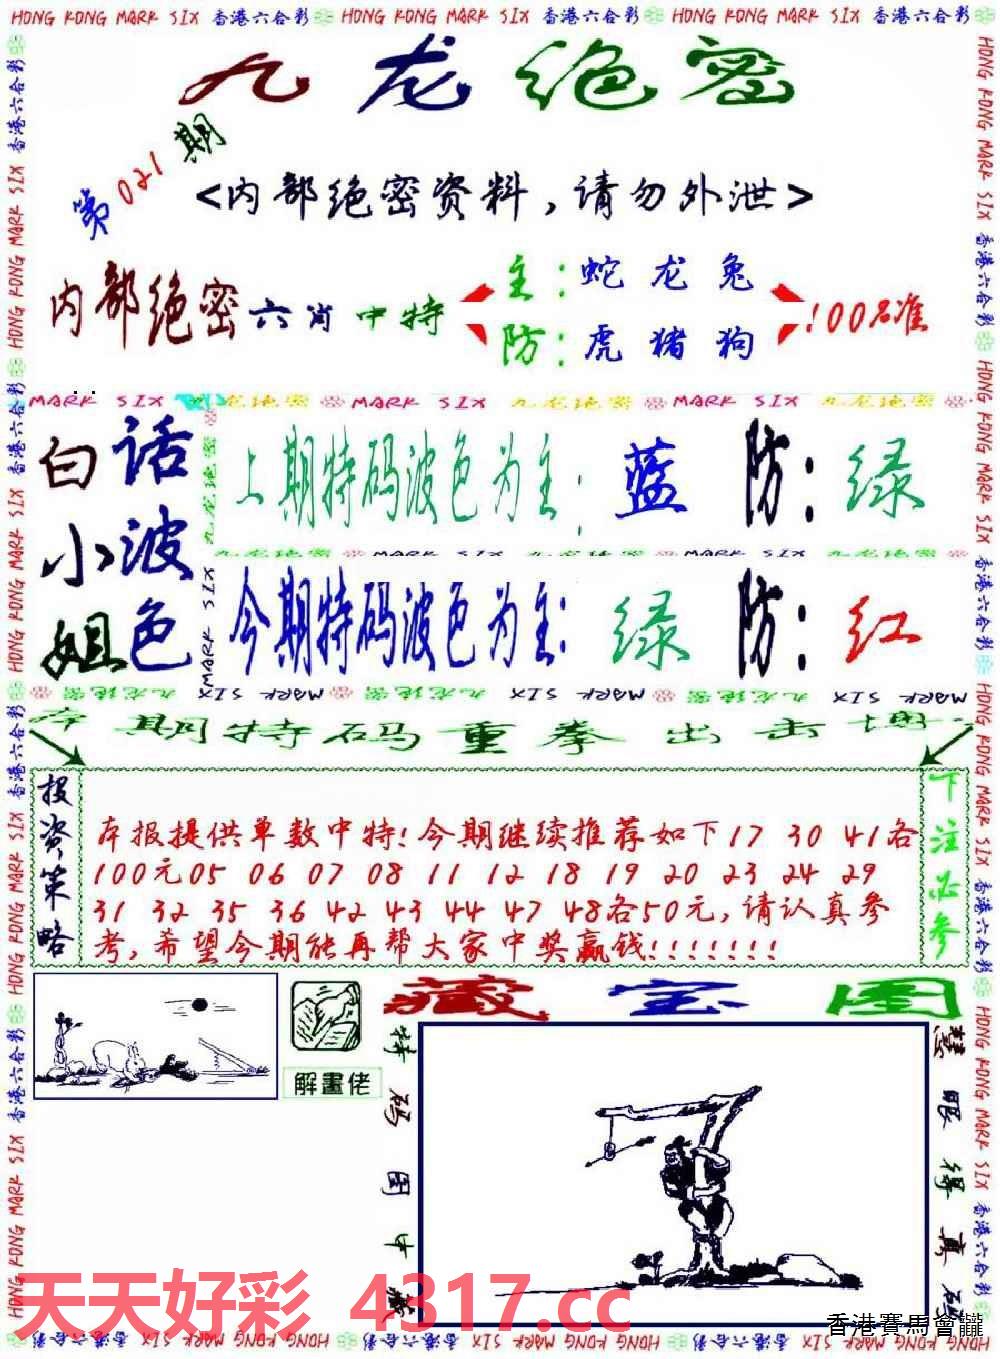 HONG KONG MARK SIX 香港六合彩 HONG KONG MARK SIX 香港六合彩 HONG KONG MARK SIX 香港六合彩
九龙绝密
第021期
<内部绝密资料,请勿外泄>
内部绝密六肖中特
主:蛇龙兔
防:虎猪狗
!100%准
MARK SIX 九龙绝密 MARK SIX 九龙绝密 MARK SIX 九龙绝密
白小姐
话波色
上期特码波色为主: 蓝 防: 绿
九龙绝密 MARK SIX 九龙绝密 MARK SIX 九龙绝密
今期特码波色为主: 绿 防: 红
九龙绝密 MARK SIX 九龙绝密 MARK SIX 九龙绝密 MARK SIX
本期特码重拳出击
投资策略
本报提供单数中特!今期继续推荐如下17 30 41各
100元05 06 07 08 11 12 18 19 20 23 24 29
31 32 35 36 42 43 44 47 48各50元,请认真参
考,希望今期能再帮大家中奖赢钱!!!!!!!
下注必参
藏宝图
解畫佬
特码图中藏
慧眼得真码
天天好彩 4317.cc
香港賽馬會